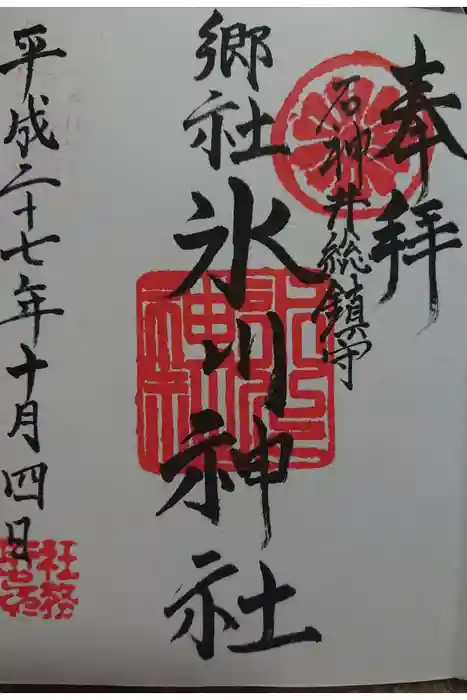 奉拝
石神井総鎮守
郷社氷川神社
平成二十七年十月四日
氷川神社